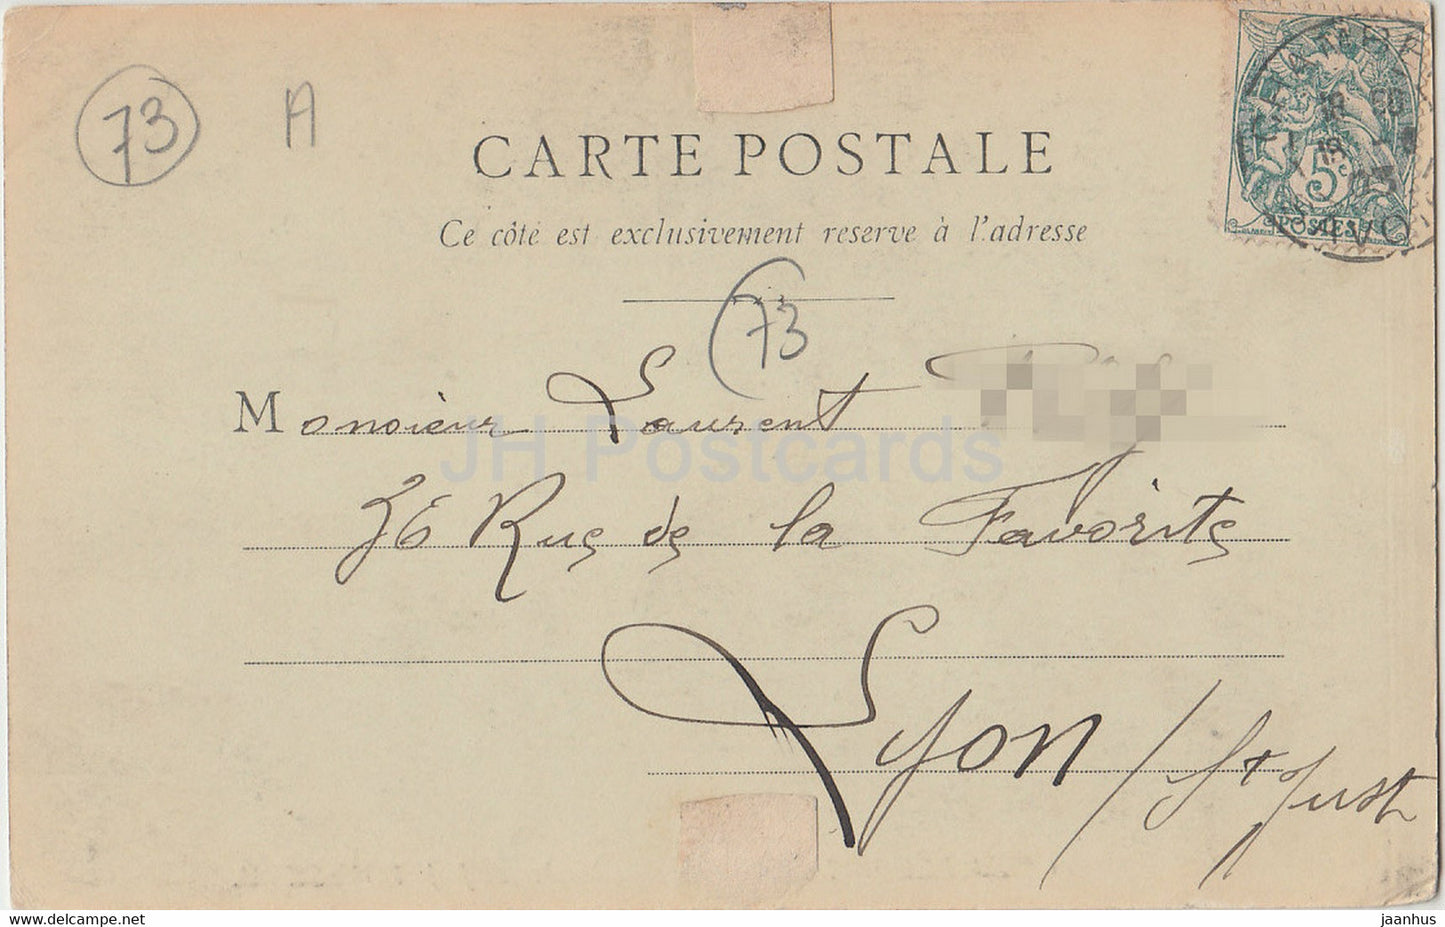 73 A
CARTE POSTALE
Ce côté est exclusivement reserve à l'adresse
73
Monsieur Laurent
36 Rue de la Favorite
Lyon / St Just
5c
POSTES
JH Postcards
delcampe.net
jaanhus